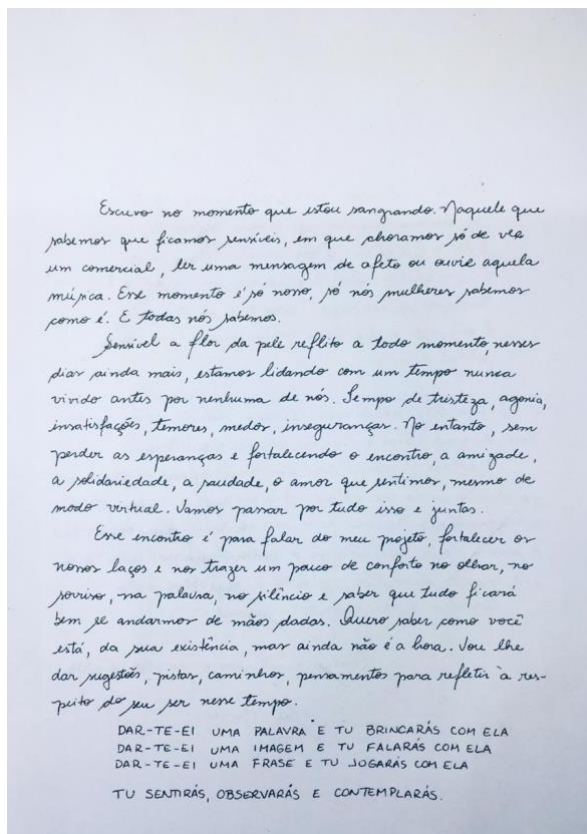 Escrevo no momento que estou sangrando. Naquele que
sabemos que ficamos sensíveis, em que choramos só de ver
um comercial, ler uma mensagem de afeto ou ouvir aquela
música. Esse momento é só nosso, só nós mulheres sabemos
como é. E todas nós sabemos.
Sensível a flor da pele reflito a todo momento, nesses
dias ainda mais, estamos lidando com um tempo nunca
vivido antes por nenhuma de nós. Tempo de tristeza, agonia,
insatisfações, temores, medos, inseguranças. No entanto, sem
perder as esperanças e fortalecendo o encontro, a amizade,
a solidariedade, a saudade, o amor que sentimos, mesmo de
modo virtual. Vamos passar por tudo isso e juntas.
Esse encontro é para falar do meu projeto, fortalecer os
nossos laços e nos trazer um pouco de conforto no olhar, no
sorriso, na palavra, no silêncio e saber que tudo ficará
bem se andarmos de mãos dadas. Quero saber como você
está, da sua existência, mas ainda não é a hora. Vou lhe
dar sugestões, pistas, caminhos, pensamentos para refletir à res-
peito do seu ser nesse tempo.
DAR-TE-EI UMA PALAVRA E TU BRINCARÁS COM ELA
DAR-TE-EI UMA IMAGEM E TU FALARÁS COM ELA
DAR-TE-EI UMA FRASE E TU JOGARÁS COM ELA
TU SENTIRÁS, OBSERVARÁS E CONTEMPLARÁS.